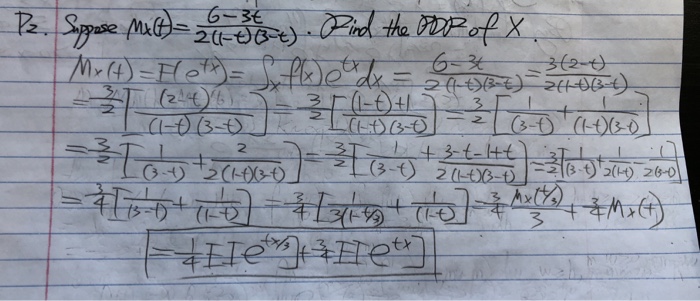 P2. Suppose Mx(t) = 6-3t / 2(1-t)(3-t) . Find the PDF of X.
Mx(t) = E(e^tx) = ∫x f(x) e^tx dx = 6-3t / 2(1-t)(3-t) = 3(2-t) / 2(1-t)(3-t)
= 3/2 [ (2-t) / (1-t)(3-t) ] = 3/2 [ (1-t)+1 / (1-t)(3-t) ] = 3/2 [ 1/(3-t) + 1/(1-t)(3-t) ]
= 3/2 [ 1/(3-t) + 2/2(1-t)(3-t) ] = 3/2 [ 1/(3-t) + 3-t-1+t / 2(1-t)(3-t) ] = 3/2 [ 1/(3-t) + 1/2(1-t) - 1/2(3-t) ]
= 3/4 [ 1/(3-t) + 1/(1-t) ] = 3/4 [ 1/3(1-t/3) + 1/(1-t) ] = 3/4 Mx(t/3)/3 + 3/4 Mx(t)
= 1/4 E[e^tx/3] + 3/4 E[e^tx]